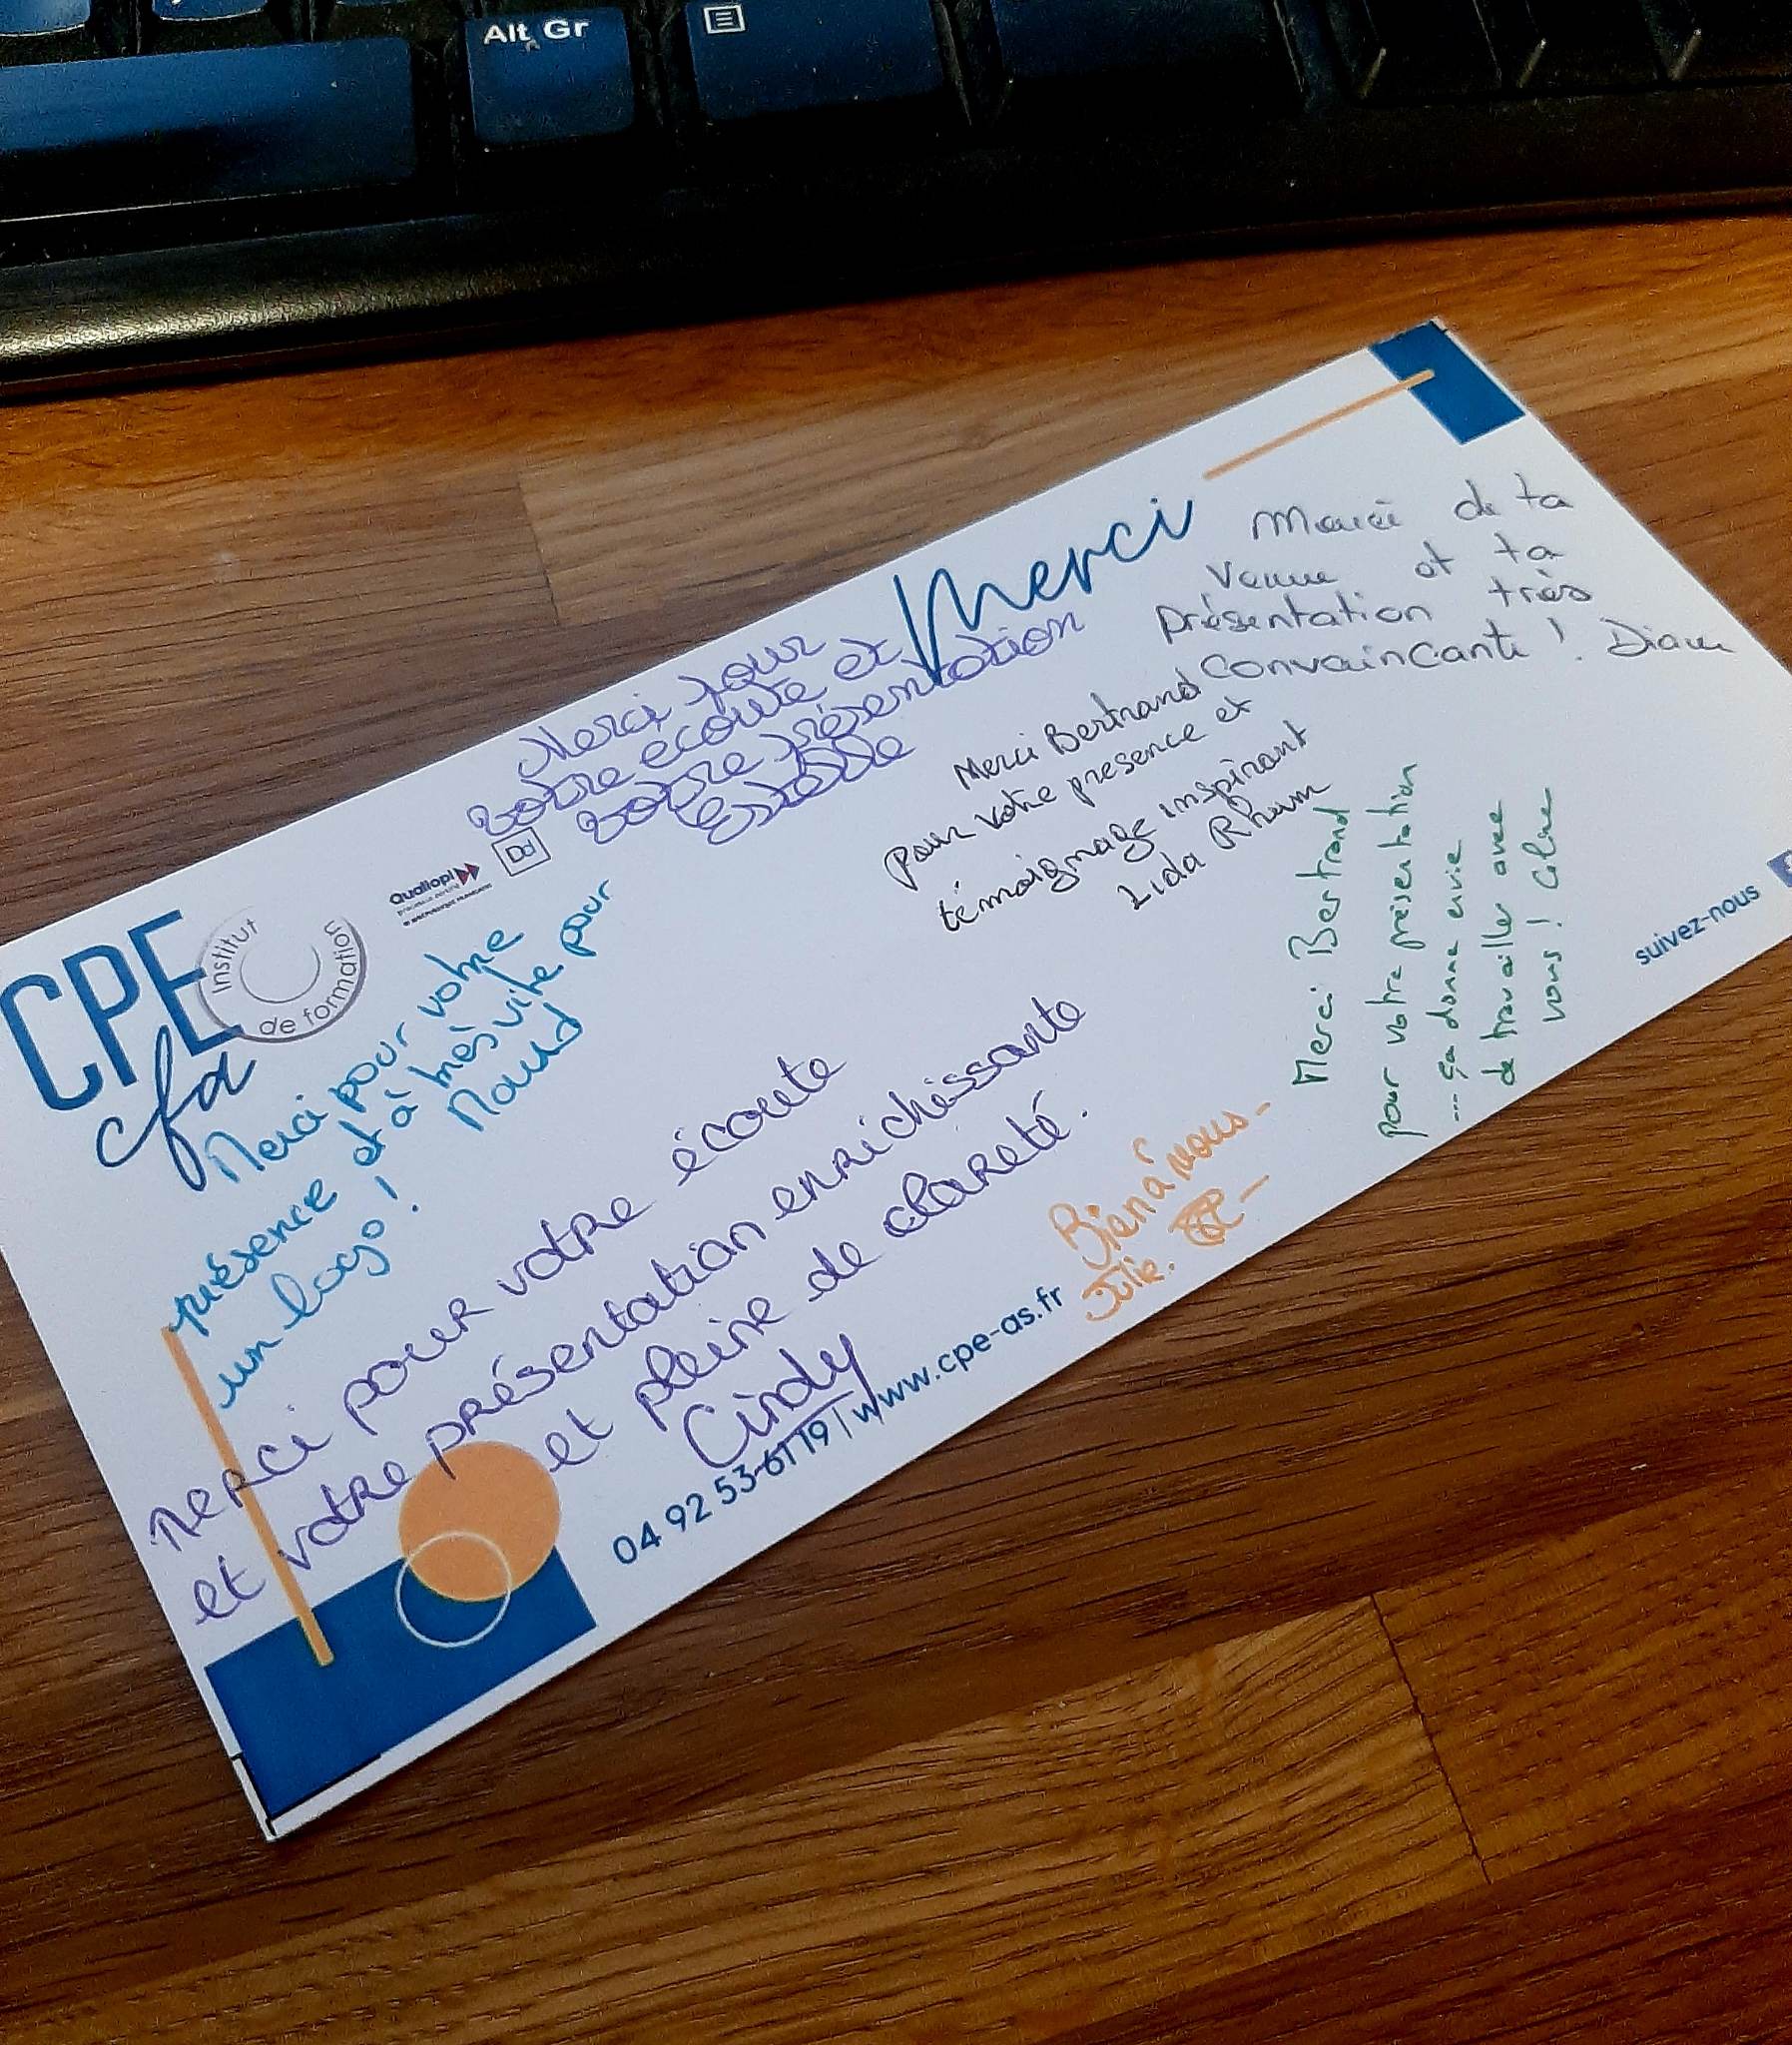 Alt Gr
CPE
cfa
Institut
de formation
Qualiopi
processus certifié
RÉPUBLIQUE FRANÇAISE
Dd
Merci
Merci pour
votre écoute et
votre présentation
Estelle
Merci de ta
venue et ta
présentation très
convaincante ! Diane
Merci Bertrand
pour votre presence et
témoignage inspirant
Lida Rhum
Merci pour votre
présence et à très vite pour
un logo ! Maud
Merci pour votre écoute
et votre présentation enrichissante
et pleine de clareté.
Cindy
Bien à vous -
Julie.
Merci Bertrand
pour votre présentation
... ça donne envie
de travailler avec
vous !
04 92 53 61 19 | www.cpe-as.fr
suivez-nous